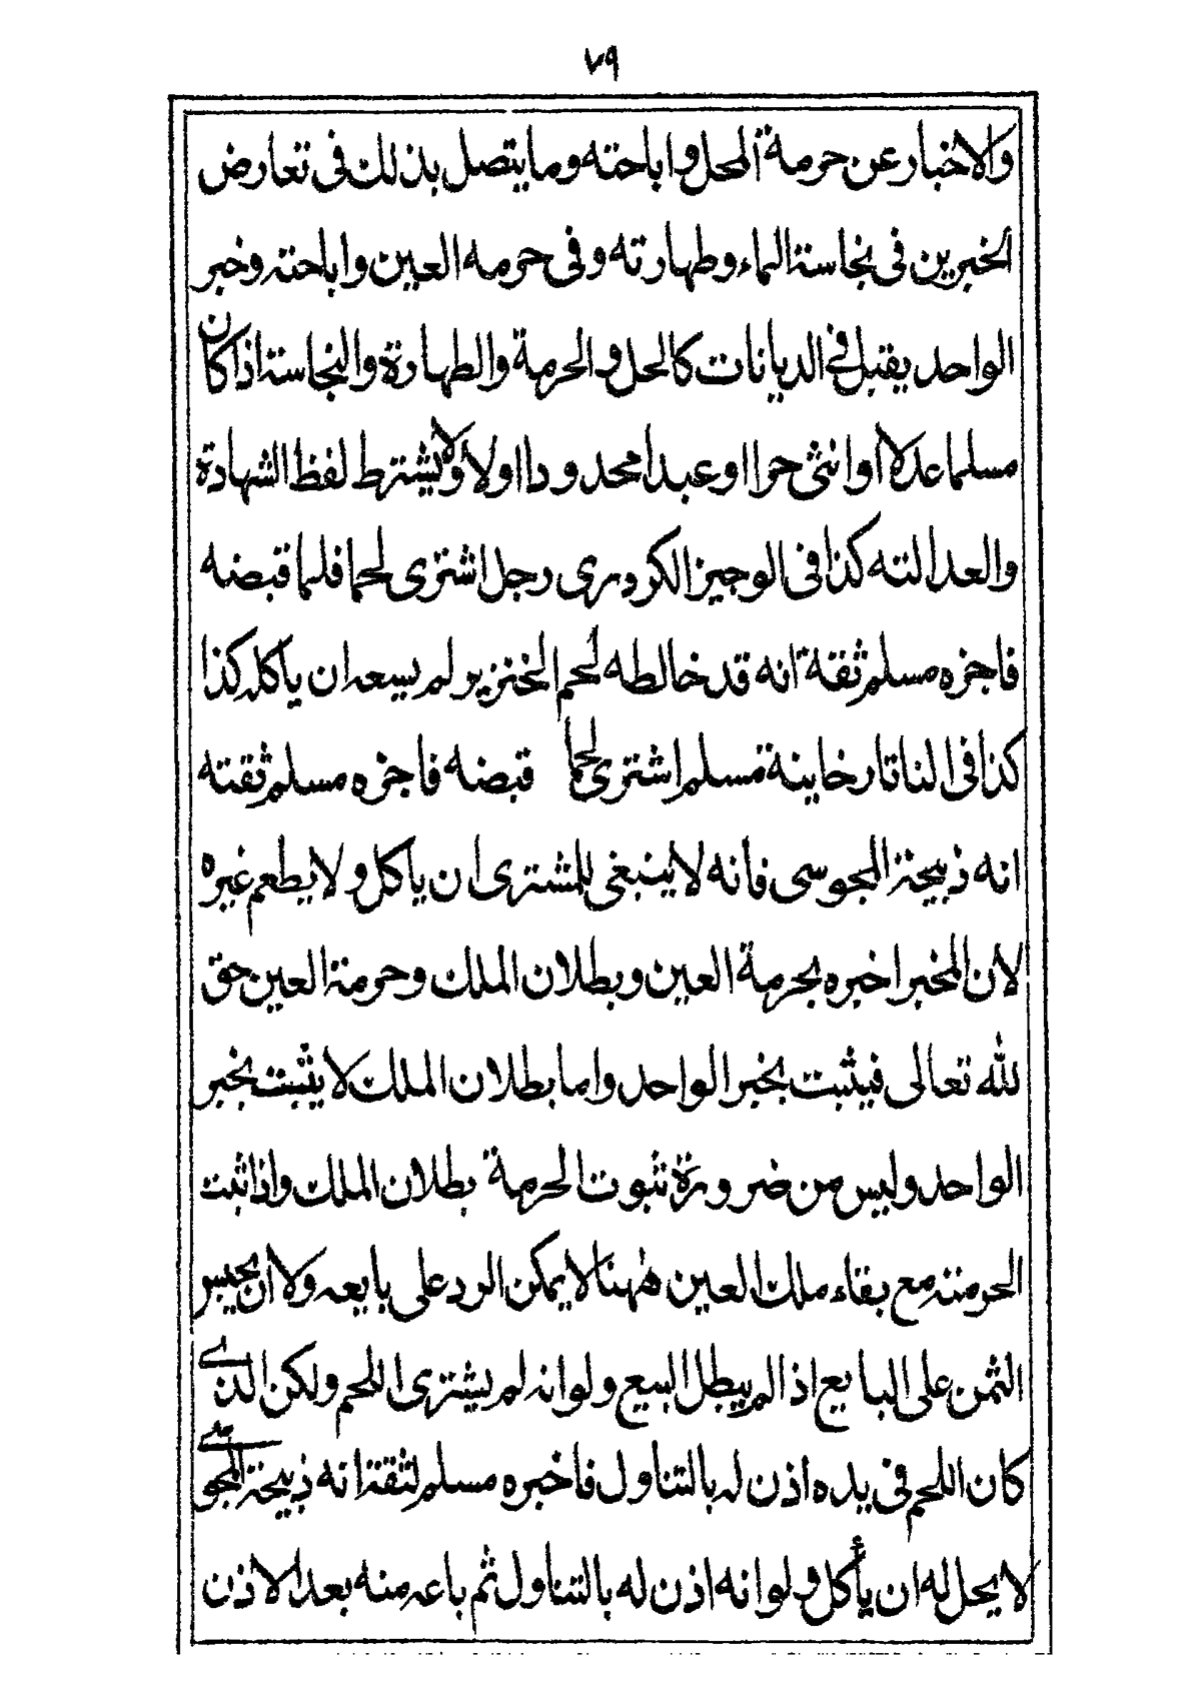 ٧٩
والاخبار عن حرمة المحل واباحته وما يتصل بذلك فى تعارض
الخبرين فى نجاسة الماء وطهارته وفى حرمه العين واباحته وخبر
الواحد يقبل فى الديانات كالحل والحرمة والطهارة والنجاسة اذا كان
مسلما عدلا اوانثى حرا اوعبدا محدودا اولا ولا يشترط لفظ الشهادة
والعدالته كذا فى الوجيز الكردرى رجل اشترى لحما فلما قبضه
فاجزه مسلم ثقة انه قد خالطه لحم الخنزير لم يسعه ان ياكله كذا
كذا فى التاتارخاينة مسلم اشترى لحما قبضه فاجزه مسلم ثقته
انه ذبيحة المجوسى فانه لا ينبغى للمشترى ان ياكل ولا يطعم غيره
لان المخبر اخبره بحرمة العين وبطلان الملك وحرمة العين حق
لله تعالى فيثبت بخبر الواحد واما بطلان الملك لا يثبت بخبر
الواحد وليس من ضرورة ثبوت الحرمة بطلان الملك واذا ثبت
الحرمته مع بقاء ملك العين ههنا لا يمكن الرد على بايعه ولا ان يحبس
الثمن على البايع اذا لم يبطل البيع ولو انه لم يشترى اللحم ولكن الذى
كان اللحم فى يده اذن له بالتناول فاخبره مسلم ثقة انه ذبيحة المجوسى
لا يحل له ان يأكل ولو انه اذن له بالتناول ثم باعه منه بعد الاذن